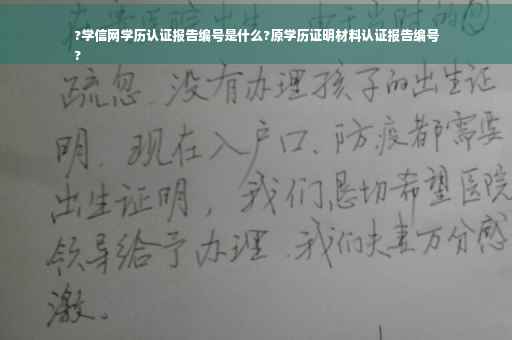 ?学信网学历认证报告编号是什么?原学历证明材料认证报告编号
?
在贵医院出生,由于当时的
疏忽.没有办理孩子的出生证
明.现在入户口、防疫都需要
出生证明,我们恳切希望医院
领导给予办理.我们夫妻万分感
激。